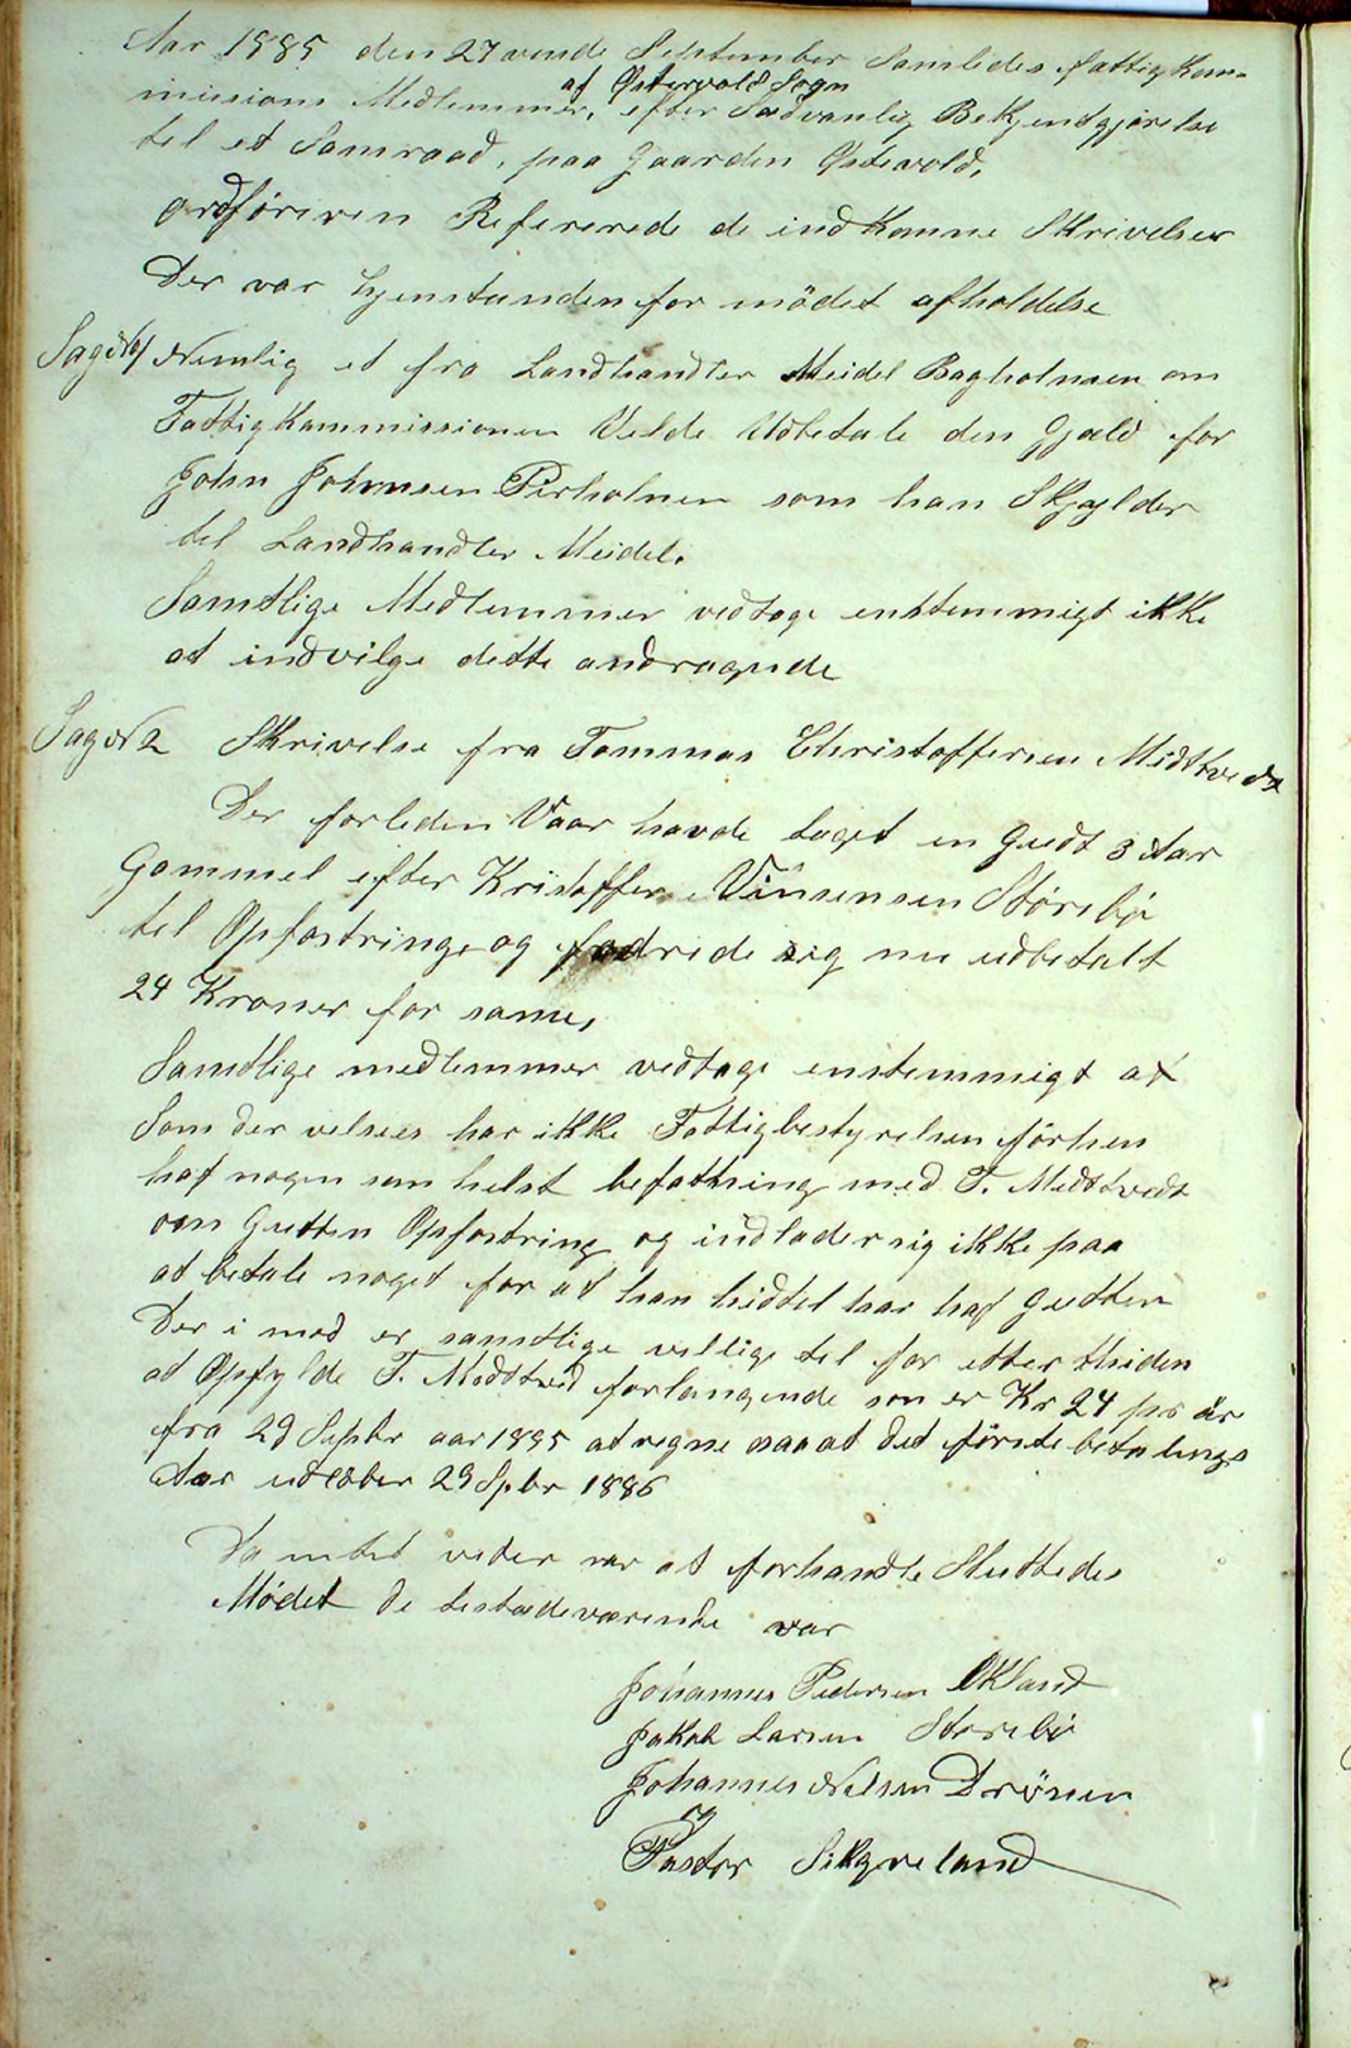 Aar 1885 den 27vende September Samledes fattigkom-
missions Medlemmer, af Østervold Sogn efter Sædvanlig Bekjendtgjørelse
til et Samraad, paa Gaarden Østevold,
ordføreren Refererede de indkomne Skrivelser
Der var Gjenstanden for mödet afholdelse
Sag No 1 Nemlig et fra Landhandler Meidel Bagholmen om
Fattigkommissionen Vilde Udbetale den Gjæld for
John Johnsen Perholmen som han Skjylder
til Landhandler Meidel.
Samtlige Medlemmer vedtoge enstemmigt ikke
at indvilge dette andragende
Sag N 2 Skrivelse fra Tommas Christoffersen Midttvedt
Der forleden Vaar havde taget en Gudt 3 Aar
Gammel efter Kristoffer Vinsensen Störebö
til Opfostringe og fodrede sig nu udbetalt
24 Kroner for same,
Samtlige medlemmer vedtoge enstemmigt at
Som der velsees har ikke Fattigbestyrelsen förhen
haf nogen som helst befathning med T. Midttvedt
om Gutten Opfostring og indlader sig ikke paa
at betale noget for at han hidtil har haf Gutten
Der i mod er samtlige villige til for etter thiden
at Opfylde T. Midttved forlangende som er Kr 24 pr år
fra 29 Septbr aar 1885 at regne saa at det förste betalings
Aar udløber 29 Spbr 1886
Da intet vider var at forhandle Sluttedes
Mödet De testædeværende var
Johannes Pedersen Økland
Jakob Larsen Störebö
Johannes Nilsen Drönen
og
Pastor Sikqveland